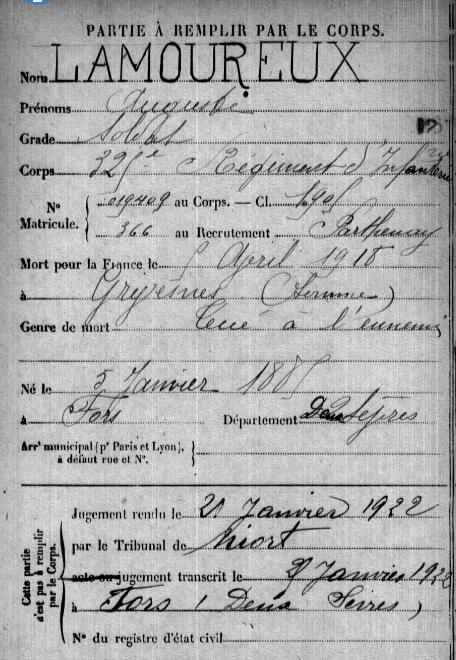 PARTIE À REMPLIR PAR LE CORPS.
Nom LAMOUREUX
Prénoms Auguste
Grade Soldat
Corps 325e Régiment d'Infanterie
N° Matricule. 019409 au Corps. — Cl. 1905
366 au Recrutement Parthenay
Mort pour la France le 5 April 1918
à Grivesnes (Somme)
Genre de mort Tué à l'ennemi
Né le 5 Janvier 1885
à Fors Département Deux Sèvres
Arrt municipal (pr Paris et Lyon),
à défaut rue et N°.
Cette partie n'est pas à remplir par le Corps.
Jugement rendu le 21 Janvier 1922
par le Tribunal de Niort
acte ou jugement transcrit le Janvier 1922
à Fors (Deux Sèvres)
N° du registre d'état civil